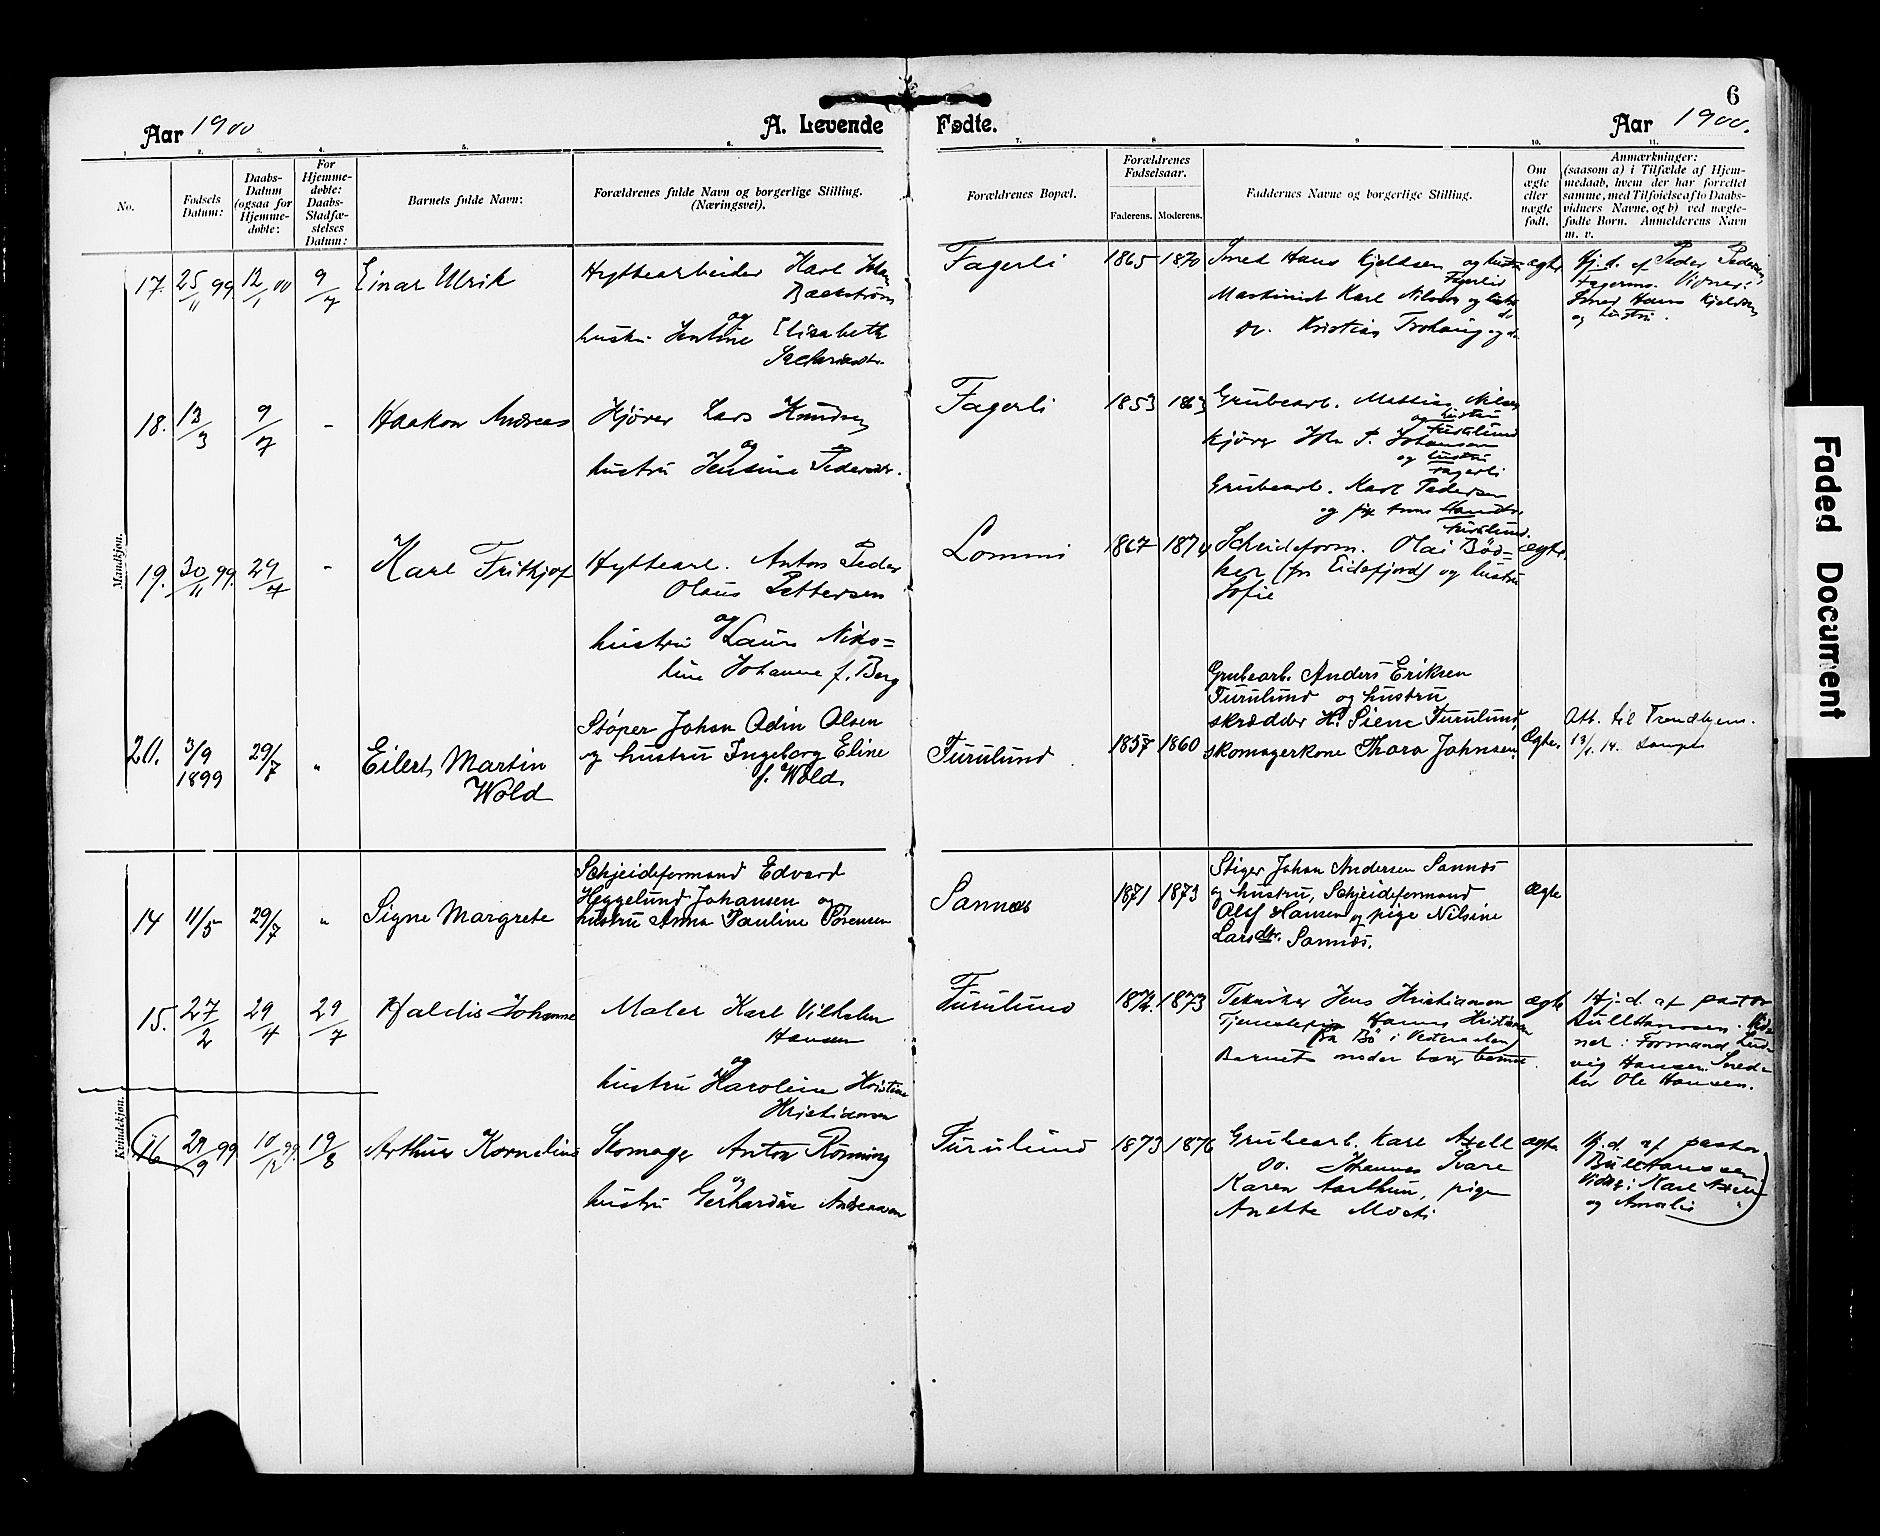 6
Aar 1900
A. Levende Fødte.
Aar 1900.
1. 2. 3. 4. 5. 6. 7. 8. 9. 10. 11.
No.
Fødsels Datum:
Daabs-Datum (ogsaa for Hjemmedøbte:
For Hjemmedøbte: Daabs-Stadfæstelses Datum:
Barnets fulde Navn:
Forældrenes fulde Navn og borgerlige Stilling. (Næringsvei).
Forældrenes Bopæl.
Forældrenes Fødselsaar.
Faderens. Moderens.
Faddernes Navne og borgerlige Stilling.
Om ægte eller nægte født.
Anmærkninger:
(saasom a) i Tilfælde af Hjem-
medaab, hvem der har forrettet
samme, med Tilføielse af to Daabs-
vidners Navne, og b) ved nægte-
fødte Born. Anmelderens Navn
m. v.
Mandkjøn.
17. 25/11 99 12/1 00 9/7 Einar Ulrik
Hyttearbeider Karl Johan
Backstrøm
og
hustru Jentine Elisabeth
Fagerli 1865 1870
Smed Hans Kjeldsen og hustru
Fagerli
Maskinist Karl Nilsen og hustru
do. Kristian Trohaug og do
ægte
Hj. d. af Peder Pedersen
Fagermo. Vidner:
Smed Hans Kjeldsen
og hustru.
18. 13/3 9/7 - Haakon Andreas
Kjører Lars Knudsen
og
hustru Jensine Pedersdtr.
Fagerli 1853 1863
Grubearb. Mathias Nilsen
og hustru
Furulund
Kjører Joh. P. Johansen
og hustru
Fagerli
Grubearb. Karl Pedersen
og pige
Furulund.
19. 30/11 99. 29/7 - Karl Frithjof
Hyttearb. Anton Peder
Olaus Pettersen
og
hustru Laura Niko=
line Johanne f. Berg
Lommi 1867 1874
Scheideform. Olai Bød=
ker (fra Eidefjord) og hustru
Sofie
ægte
20. 3/9 1899 29/7 " Eilert Martin
Wold
Støper Johan Odin Olsen
og hustru Ingeborg Eline
f. Wold.
Furulund 1857 1860
Grubearb. Anders Eriksen
Furulund og hustru
skrædder H. Siem Furulund,
skomagerkone Thora Johnsen.
Ægte.
Att. til Trondhjem.
13/1. 14.
Kvindekjøn.
14 11/5 29/7 " Signe Margrete
Schjeideformand Edvard
Heggelund Johansen og
hustru Anna Pauline Sørensen
Sannæs 1871 1873
Stiger Johan Andersen Sannæs
og hustru, Schjeideformand
Olaf Hansen og pige Nilsine
Larsdtr. Sannæs.
Ægte
15. 27/2 29/4 29/7 Haldis Johanne
Maler Karl Vilhelm
Hansen
og
hustru Karoline Kristine
Kristiansen
Furulund 1872. 1873
Tekniker Jens Kristiansen
Tjenestepige Hanna Kristiansen
fra Bø i Vesteraalen
Barnets moder bar barnet
ægte
Hj. d. af pastor
Bull Hanssen. Vid=
ner: Formand Lud=
vig Hansen. Sned=
ker Ole Hansen.
16 29/9 99 10/12 99. 19/8 Arthur Kornelius
Skomager Anton Rønning
og
hustru Gerhardine Andreassen
Furulund 1873 1876
Grubearb. Karl Axell
do. Johannes Svare
Karen Aarthun, pige
Anette Mosti
ægte
Hj. d. af pastor
Bull Hanssen
Vidner: Karl Axell
og Amalie
Faded Document